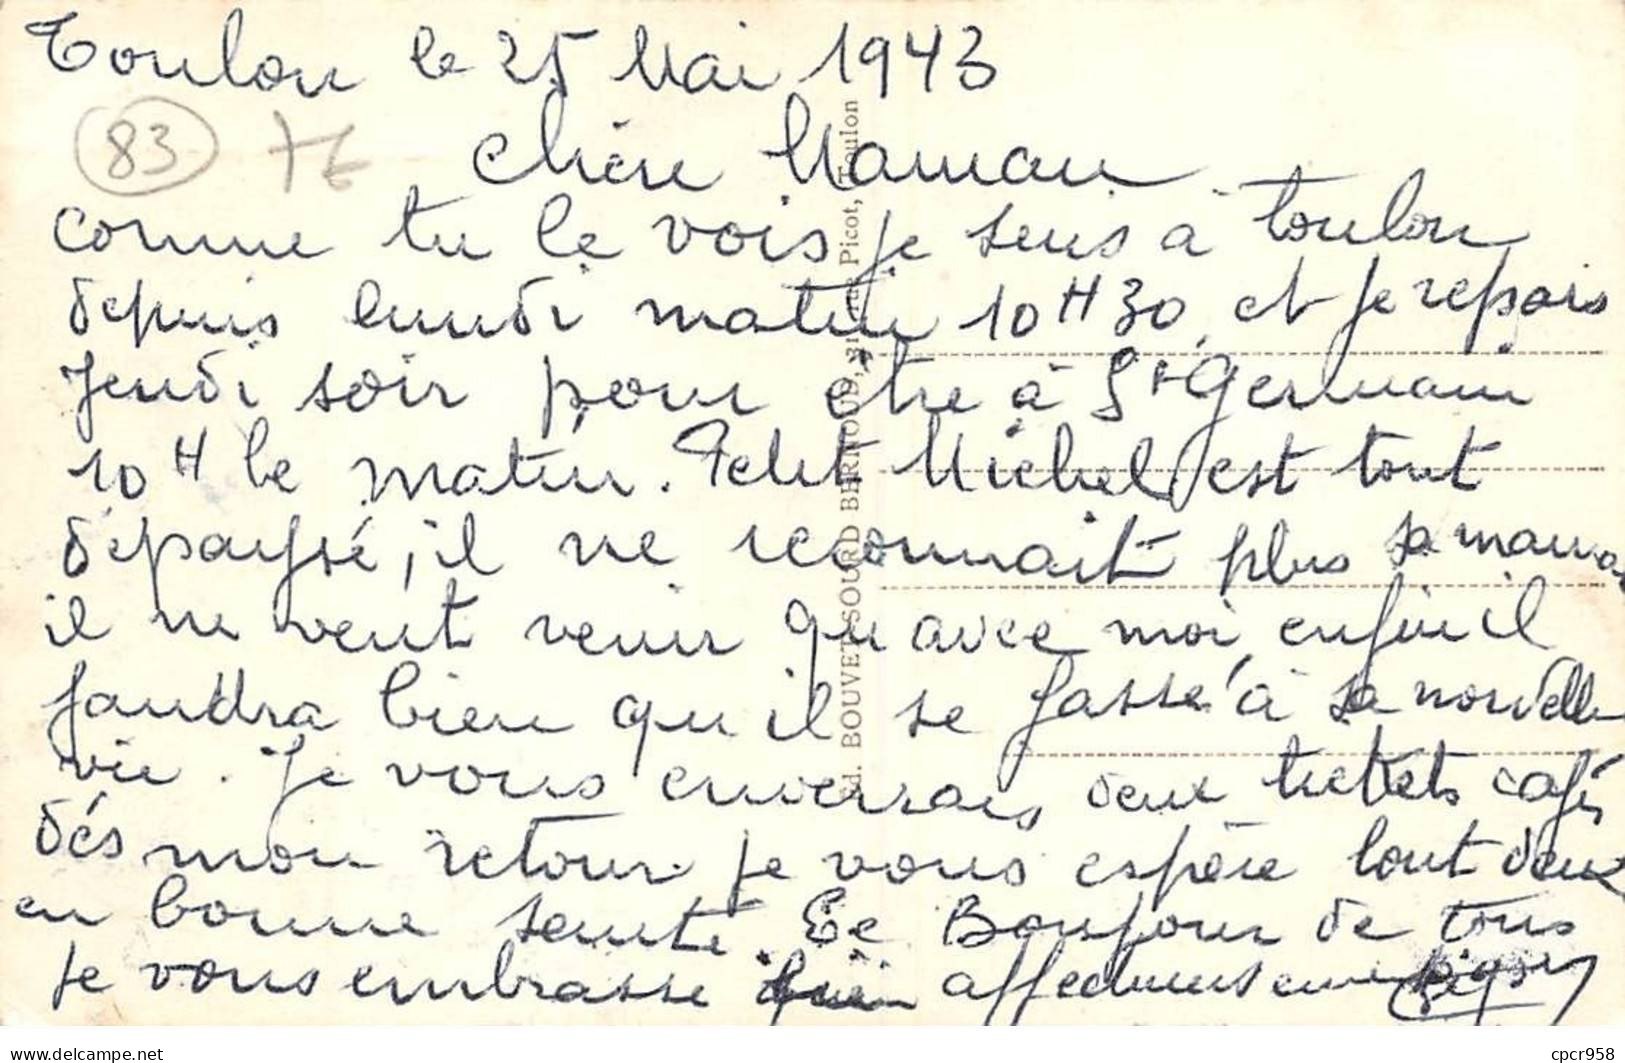 Toulon le 25 Mai 1943
83
Chère Maman
comme tu le vois je suis à Toulon
depuis lundi matin 10H30 et je repars
Jeudi soir pour etre à St Germain
10H le matin. Petit Michel est tout
dépaysé, il ne reconnait plus sa maman
il ne veut venir qu avec moi enfin il
faudra bien qu il se fasse à sa nouvelle
vie. Je vous enverrais deux tickets cafés
dés mon retour. Je vous espère tout deux
en bonne santé. Le Bonjour de tous
Je vous embrasse affectueusement
Ed. BOUVET-SOURD BERNOUD, Picot, Toulon
https://www.delcampe.net
cpcr958